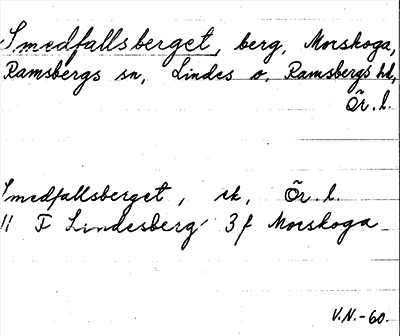 Smedfallsberget, berg, Morskoga,
Ramsbergs sn, Lindes o. Ramsbergs hd,
Ör. l.
Smedfallsberget, ek, Ör. l.
11 F Lindesberg 3 f Morskoga
V.N.-60.